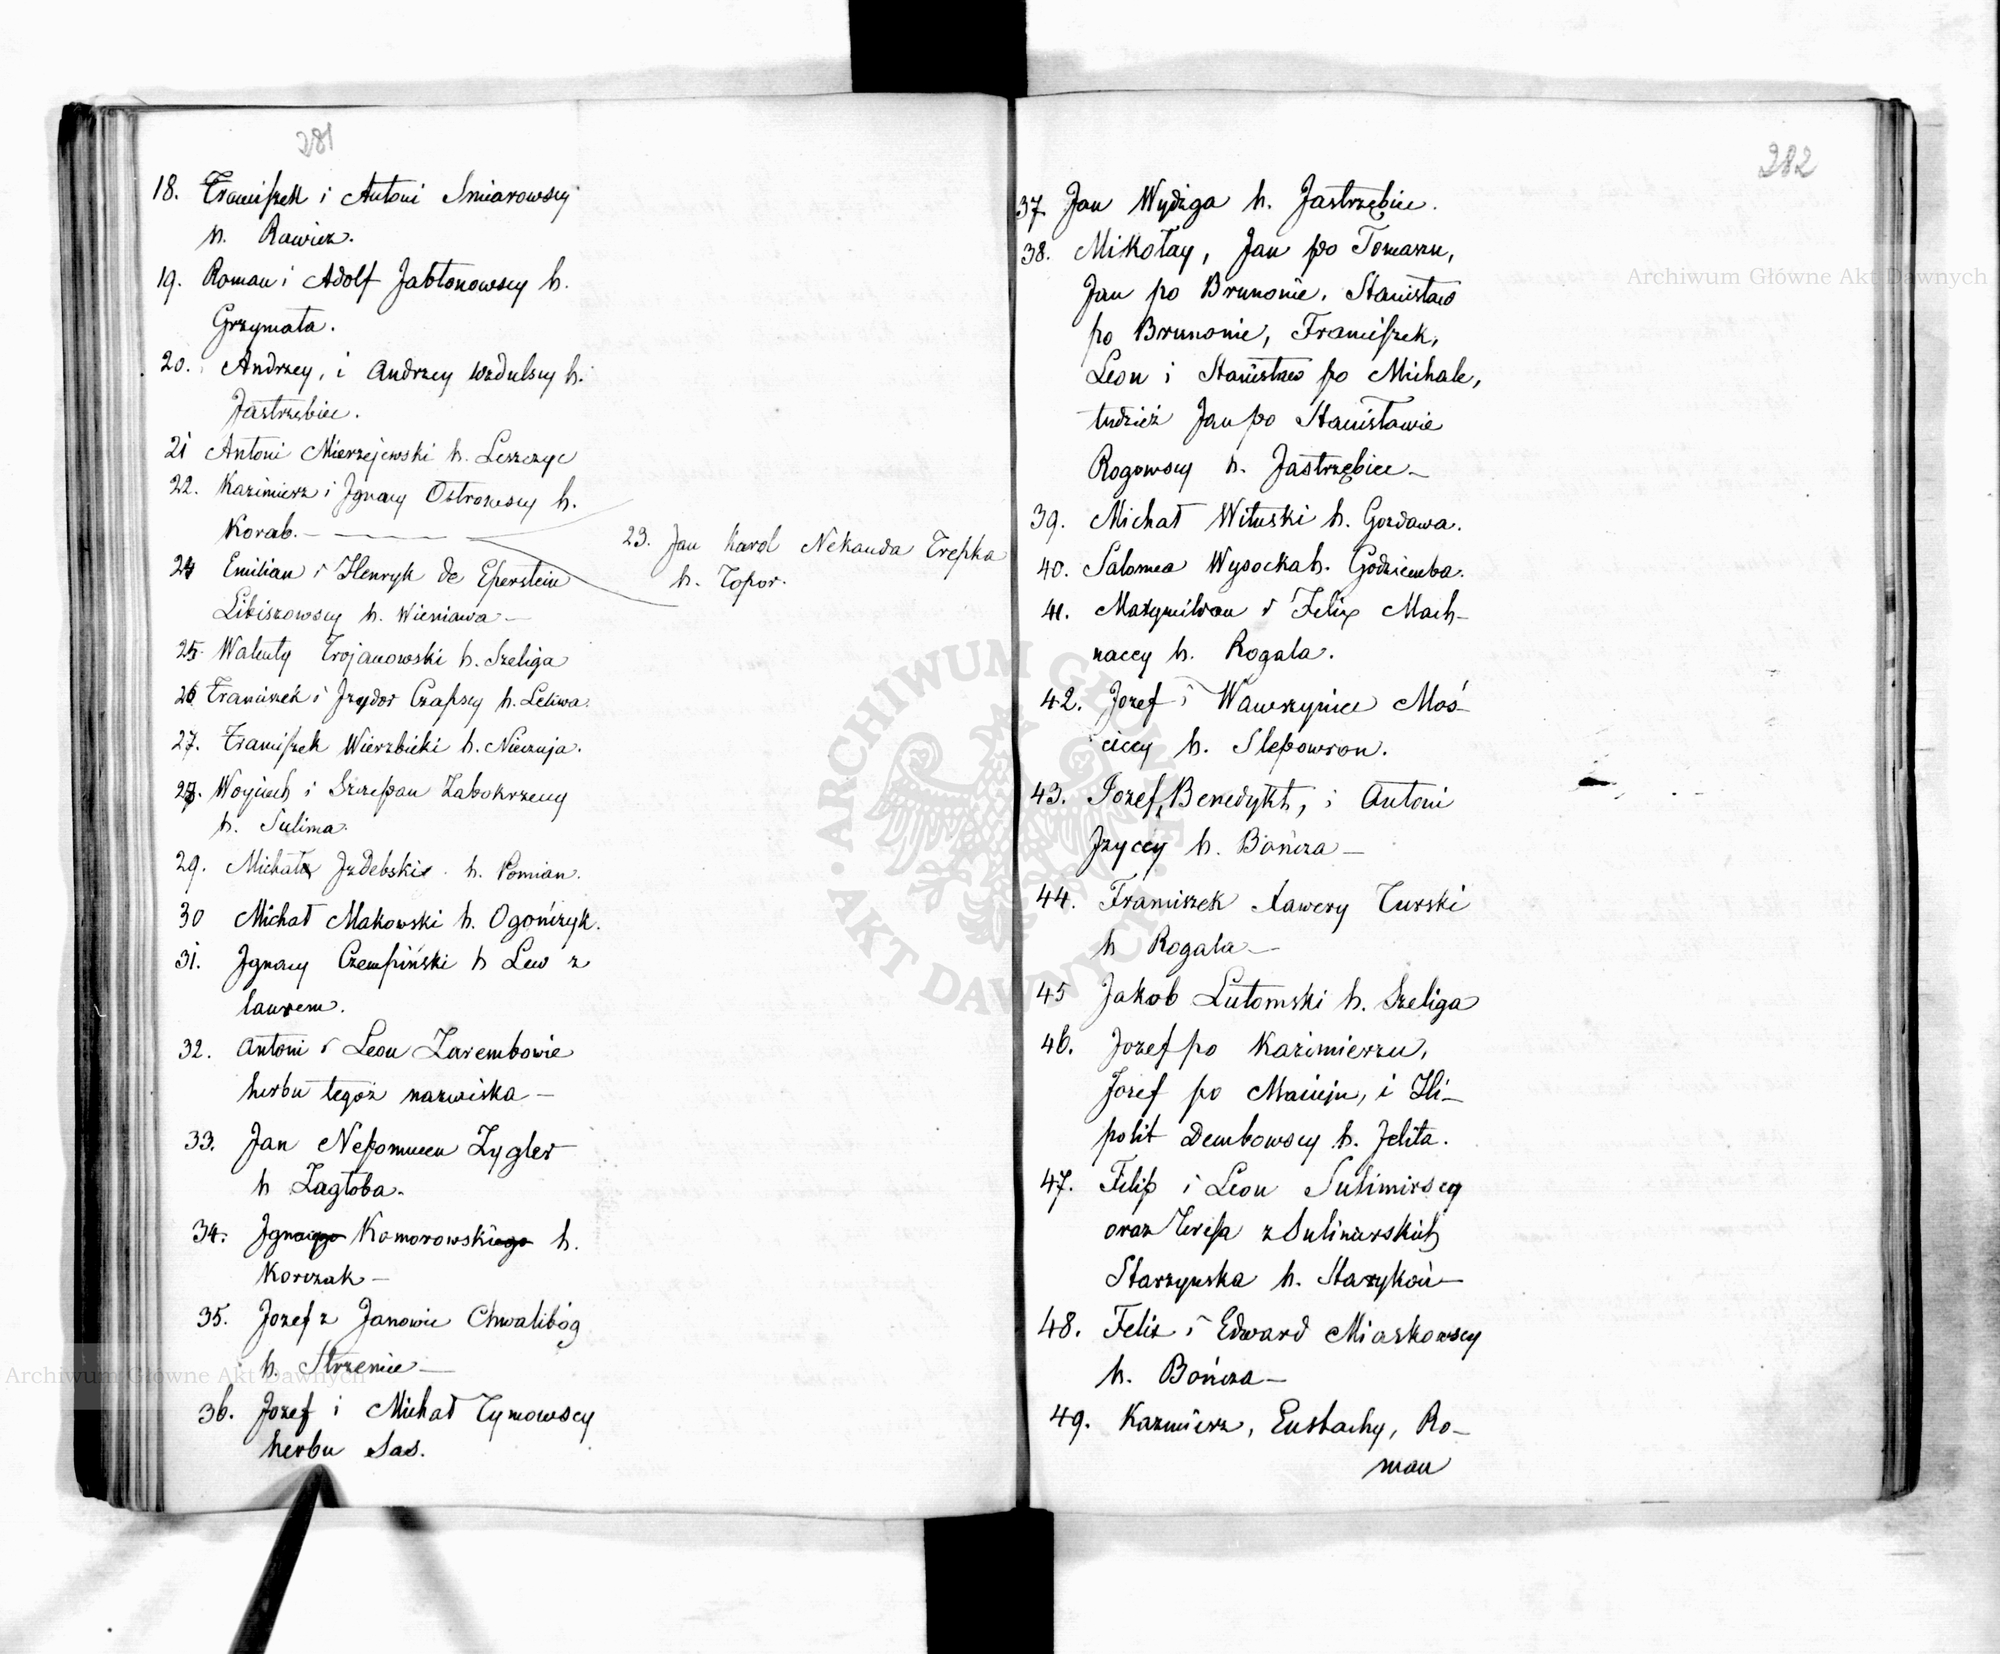 281
18. Franciszek i Antoni Smiarowscy
h. Rawicz.
19. Roman i Adolf Jabłonowscy h.
Grzymała.
20. Andrzey, i Andrzey Wzdulscy h.
Jastrzębiec.
21 Antoni Mierzejewski h. Leszczyc
22. Kazimierz i Jgnacy Ostrowscy h.
Korab. —
23. Jan Karol Nekanda Trepka
h. Topor.
24 Emilian i Henryk de Eperstein
Libiszowscy h. Wieniawa —
25. Walenty Trojanowski h. Szeliga
26 Franciszek i Jzydor Czapscy h. Leliwa.
27. Franciszek Wierzbicki h. Nieczuja.
28. Woyciech i Szczepan Zabokrzeccy
h. Sulima.
29. Michał Jzdebski h. Pomian.
30 Michał Makowski h. Ogończyk.
31. Jgnacy Czempiński h Lew z
laurem.
32. Antoni i Leon Zarembowie
herbu tegoż nazwiska —
33. Jan Nepomucen Zygler
h Zagłoba.
34. Jgnacego Komorowskiego h.
Korczak —
35. Jozef z Janowic Chwalibóg
h. Strzemie —
36. Jozef i Michał Tymowscy
herbu Sas.
282
37. Jan Wydżga h. Jastrzębiec.
38. Mikołay, Jan po Tomaszu,
Jan po Brunonie, Stanisław
po Brunonie, Franciszek,
Leon i Stanisław po Michale,
tudzież Jan po Stanisławie
Rogowscy h. Jastrzębiec —
39. Michał Wituski h. Gozdawa.
40. Salomea Wysocka h. Godziemba.
41. Maxymilian i Felix Mach-
naccy h. Rogala.
42. Jozef i Wawrzyniec Moś-
ciccy h. Slepowron.
43. Jozef, Benedykt, i Antoni
Jzyccy h. Bończa —
44. Franciszek Xawery Turski
h Rogala —
45 Jakob Lutomski h. Szeliga
46. Jozef po Kazimierzu,
Jozef po Macieju, i Hi-
polit Dembowscy h. Jelita.
47. Filip i Leon Sulimirscy
oraz Teresa z Sulimirskich
Starzynska h. Starykoń —
48. Felix i Edward Miaskowscy
h. Bończa —
49. Kazimierz, Eustachy, Ro-
man
Archiwum Główne Akt Dawnych
Archiwum Główne Akt Dawnych
ARCHIWUM GŁÓWNE AKT DAWNYCH